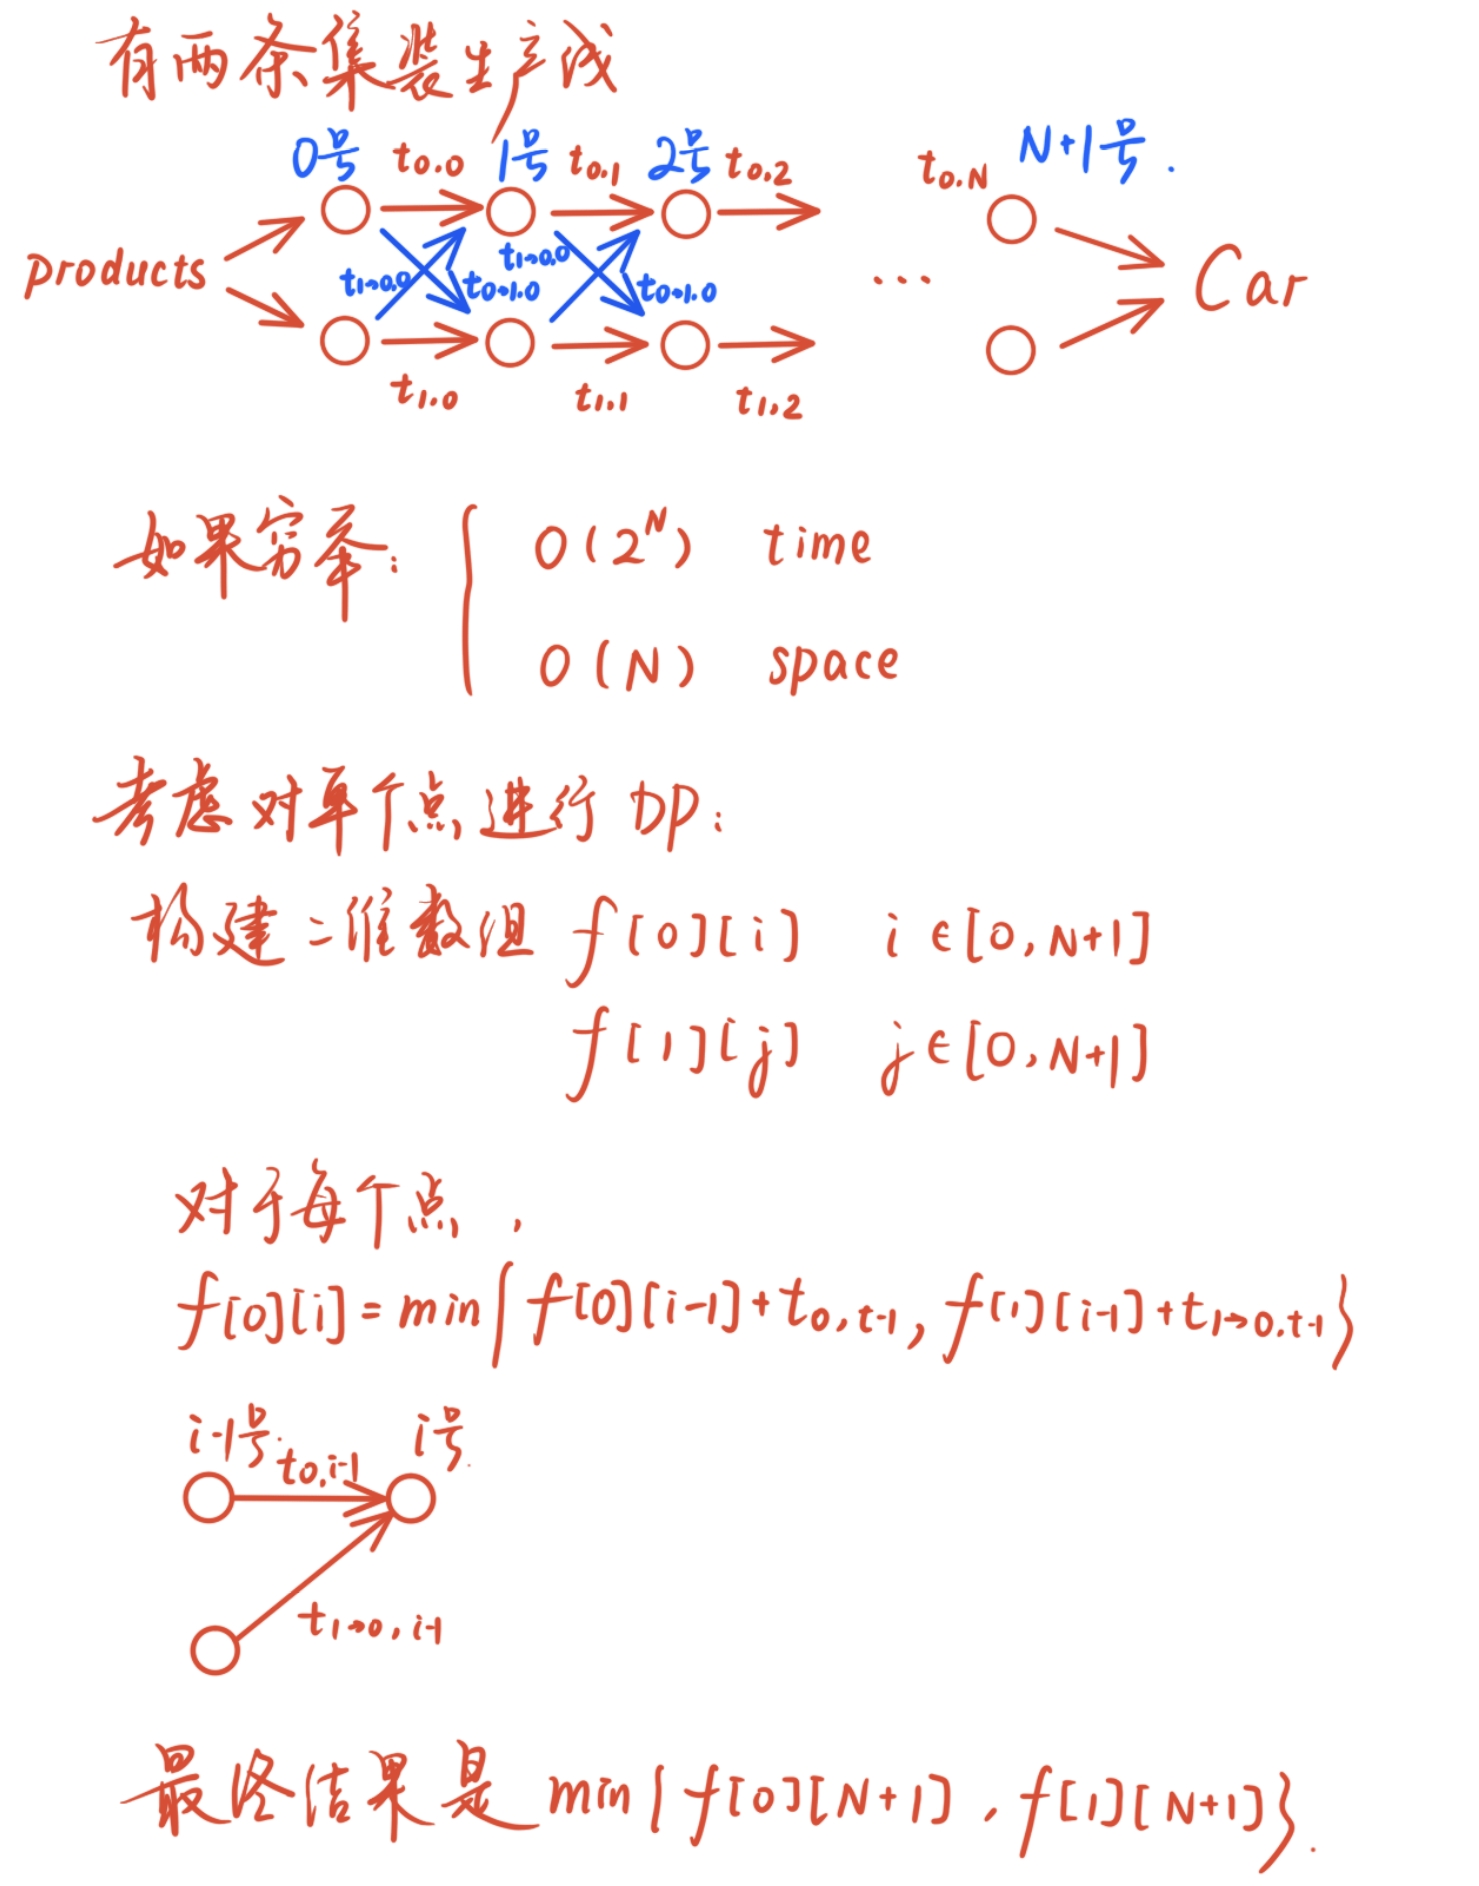 有两条集装生产线
0号 t0.0 1号 t0.1 2号 t0.2 t0.N N+1号.
products t1→0.0 t0→1.0 t1→0.0 t0→1.0 ... Car
t1.0 t1.1 t1,2
如果穷举: { O(2^N) time
O(N) space
考虑对单个点进行DP:
构建二维数组 f[0][i] i∈[0,N+1]
f[1][j] j∈[0,N+1]
对于每个点,
f[0][i]=min{f[0][i-1]+t0,t-1, f[1][i-1]+t1→0.t-1}
i-1号. i号.
t0,i-1
t1→0,i-1
最终结果是 min{f[0][N+1], f[1][N+1]}.